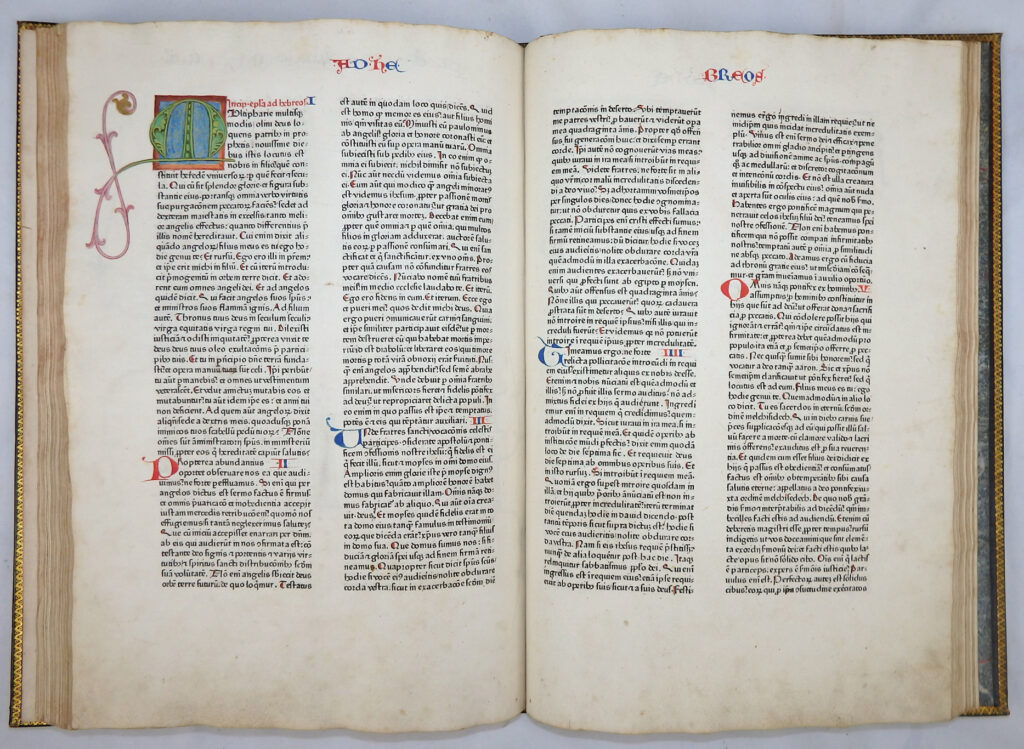 AD·HE
BREOS·
Incip·epła ad hebreos· I
Ultipharie multisq;
modis olim deus lo⸗
quens patrib̄ in pro⸗
phetis: nouissime die⸗
bus istis locutus est
nobis in filio: quē con⸗
stituit
Qui cū sit splendor glorie et figura sub⸗
stantie
sue purgacōnem sedet ad
dexteram maiestatis in excelsis: tanto meli⸗
or angelis effectus: quanto differentius p̄
illis nomē hereditauit. Cui enim dixit ali⸗
quādo angelor̄: filius meus es tu ego ho⸗
die genui te: Et rursū. Ego ero illi in prem:
et ipe erit michi in filiū. Et cū iterū introdu⸗
cit in orbem terre dicit. Et ado⸗
rent eum omnes angeli dei. Et ad angelos
quidē dicit. Qui facit angelos suos
et ministros suos flammā ignis. Ad filium
autē. Thronus tuus deus in seculum seculi:
virga equitatis virga regni tui. Dilexisti
iusticiā: et odisti
deus deus tuus oleo exultacōnis
Et tu in principio dn̄e terrā funda⸗
sti: et opera manuū tuar̄ sūt celi. Ipi peribūt
tu aūt et omnes ut vestimentum
veterascēt. Et velut amictū mutabis eos et
mutabuntur: tu aūt idem ipe es: et anni tui
non deficient. Ad quem autē angelor̄ dixit
aliqn̄: sede a dextris meis: quoadusq; ponā
inimicos tuos scabellū pedū tuor̄: Nōne
omnes sūt administratorij spūs: in ministeriū
missi: ppter eos q̄ hereditatē capiūt salutis:
Propterea abundantius II
oportet obseruare nos ea que audi⸗
uimus: ne forte peffluamus. Si eni qui per
angelos dictus est sermo factus ē firmus
et omnis puaricacō et inobediencia accepit
iustam mercedis retribucōem: quomō nos
effugiemus si tantā neglexerimus salutez:
Que cū inicium accepisset enarrari per dn̄m:
ab eis qui audierūt in nos cōfirmata est: cō⸗
testante deo signis et portentis et varijs virtu⸗
tibus et spūs sancti distribucōnibus scdm
suā volūtatē. Nō eni angelis sbiecit deus
orbē terre futurū: de quo loqmur. Testatus
est autē in quodam loco quis dicēs. Quid
est homo q̄ memor es eius: aut filius homi⸗
nis qm̄ visitas eū: Minuisti eū paulominus
ab angelis: gloria et honore coronasti eū: et
constituisti eū sup opera manuū tuarū. Omnia
subiecisti sub pedib; eius. In eo enim q̄ o⸗
mnia ei subiecit: nichil dimisit nō subiectū
ei. Nūc autē necdū videmus omīa subiecta
ei. Eum aūt qui modico q̄ angeli minorat9
est videmus ihesum: ppter passionē mortis
gloria et honore coronatū: ut gratia dei pro
omnib; gustaret mortē. Decebat enim eum
ppter quē omnia et p quē omīa: qui multos
filios in gloriam adduxerat: auctorē salu⸗
tis eor̄ p passionē consummari. Qui eni san⸗
ctificat et q̄ sanctificātur: ex vno oms. Pro⸗
pter quā causam nō cōfunditur fratres eos
vocare dicēs. Nūciabo nomē tuū fratribus
meis: in medio ecclesie laudabo te. Et iterū.
Ego ero fidens in eum. Et iterum. Ecce ego
et pueri mei: quos dedit michi deus. Quia
ergo pueri cōmunicauerūt carni et sanguini:
et ipe similiter participauit eisdē: ut p mor⸗
tem destrueret eū qui habebat mortis impe⸗
rium: id est diabolū: et liberaret eos qui timore
mortis p totā vitā obnoxij erāt seruituti. Nus⸗
q̄ eni angelos apphendit: sed semē abrahe
apprehendit. Unde debuit p omīa fratrib;
similari: ut misericors fieret et fidelis pōtifex
ad deū: ut repropiciaret delicta populi. In
eo enim in quo passus est ipe et temptatus:
potēs ē et eis qui temptātur auxiliari. III
Unde fratres sancti vocacōnis celestis
participes: osiderate apostolū et ponti⸗
ficem cōfessionis nostre ihesū: q̄ fidelis est ei
q̄ fecit illū: sicut et moyses in omi domo eius.
Amplioris enim glorie iste p moyse dign9
est habitus: quanto ampliorē honorē habet
domus qui fabricauit illam. Omnis naq; do⸗
mus fabricat ab aliquo. Qui aūt oīa crea⸗
uit: deus. Et moyses quidē fidelis erat in to⸗
ta domo eius tanq̄ famulus in testimoniū
eor̄ que dicēda erāt: xpus vero tanq̄ filius
in domo sua. Que domus sumus nos: si
fiduciā et gloriā spei usq; ad finem firmā reti⸗
neamus. Quapropter sicut dicit spūs scūs:
hodie si vocē ei9 audieritis: nolite obdurare
corda vestra: sicut in exacerbacōe scdm diē
temptacōnis in deserto. Ubi temptauerūt
me patres vestri: pbauerūt et viderūt opa
mea quadraginta annis. Propter qd̄ offen⸗
sus fui generacōni huic: et dixi semp errant
corde. Ipi autē nō cognouerūt vias meas:
quib; iuraui in ira mea si introibūt in requi⸗
em meā. Videte fratres: ne forte sit in ali⸗
quo vrm̄ cor malū incredulitatis disceden⸗
di a deo viuo: Sed adhortamini vosmetipos
per singulos dies: donec hodie cognomina⸗
tur: ut nō obduretur quis ex vobis fallacia
peccati. Participes eni cristi effecti sumus:
si tamē iniciū substantie eius usq; ad finem
firmū retineamus: dū dicitur hodie si vocē
eius audieritis: nolite obdurare corda vrā
quēadmodū in illa exacerbacōne. Quidaz
enim audientes exacerbauerūt: sz nō vni⸗
uersi qui pfecti sunt ab egipto p moysen.
Quib; aūt offensus est quadraginta annis:
Nōne illis qui peccauerūt: quor̄ cadauera
pstrata sūt in deserto: Quib; autē iurauit
nō introire in requiē ipius: nisi illis qui in⸗
creduli fuerūt: Et videmus qr nō potuerūt
introire in requiē ipius: ppter incredulitatē.
Timeamus ergo: ne forte IIII
relicta pollicitacōne introeūdi in requi⸗
em eius: existimetur aliquis ex nobis deesse.
Etenim et nobis nūciatū est quēadmodū et
illis: sz nō pfuit illis sermo auditus: nō ad⸗
mixtus fidei ex hijs q̄ audierunt. Ingredi⸗
emur eni in requiem q̄ credidimus: quem⸗
admodū dixit. Sicut iuraui in ira mea: si in⸗
troibūt in requiē meā. Et quidē operib; ab
institucōne mūdi pfectis: dixit enim quodā
loco de die septima sic. Et requieuit deus
die septima ab omnibus operibus suis. Et
in isto rursū. Si introibūt in requiem meā.
Qm̄ ergo supest introire quosdam in
illā: et hij quib; priorib; anūciatū est non in⸗
troierūt ppter incredulitatē: iterū terminat
diē quendā: hodie in dauid dicendo: post
tantū tēporis sicut supra dictū est: hodie si
vocē eius audieritis: nolite obdurare cor⸗
da vestra. Nam si eis ihesus requiē pstitisset:
nunq̄ de alia loqueretur post hac die. Itaq;
relinquitur sabbatismus pplo dei. Qui eni
ingressus est in requiem eius: etiā ipe requi⸗
euit ab operib; suis: sicut et a suis deus. Festi⸗
nemus ergo ingredi in illam requiē: ut ne
in idipm quis incidat incredulitatis exem⸗
plū. Viuus est eni sermo dei et efficax: et pene⸗
trabilior omni gladio ancipiti: et ptingens
usq; ad diuisionē anime ac spūs: compagū
q̄; ac medullarū: et discretor cogitacionum
et intencionū cordis. Et nō est ulla creatura
inuisibilis in cōspectu eius: omnia aūt nuda
et aperta sūt oculis eius: ad quē nob̄ smo.
Habentes ergo pontificē magnum qui pe⸗
netrauit celos ihesū filiū dei: teneamus spei
nostre cōfessionē. Non eni habemus pon⸗
tificem qui nō possit compati infirmitatib;
nostris: temptatū autē p omīa p similitudi⸗
nē absq; peccato. Adeamus ergo cū fiducia
ad thronū gratie eius: ut misericordiam cōseq̄⸗
mur: et gram inueniamus in auxilio oportuno.
Omnis naq; pontifex ex hominib; V
assumptus: p hominib; constituitur in
hijs que sūt ad deū: ut offerat dona et sacrifi⸗
cia p peccatis. Qui cōdolere possit hijs qui
ignorāt et errāt: qm̄ et ipe circūdatus est in⸗
firmitate: et ppterea debet quēadmodū pro
populo ita etiā p semetipo offerre p pec⸗
catis. Nec quisq̄ sumit sibi honorē: sed qui
vocatur a deo tanq̄ aaron. Sic et xpus nō
semetipm clarificauit ut pōtifex fieret: sed q̄
locutus est ad eum. Filius meus es tu: ego
hodie genui te. Quemadmodū et in alio lo⸗
co dicit. Tu es sacerdos in eternū: scdm or⸗
dinē melchisedech. Qui in dieb; carnis sue
pces supplicacōesq; ad eū qui possit illū sal⸗
uū facere a morte: cū clamore valido et lacri⸗
mis offerens: exauditus est p sua reueren⸗
tia. Et quidem cum esset filius dei: didicit ex
hijs q̄ passus est obedientiā: et consummatus
factus est omnib; obtemperātib; sibi causa
salutis eterne: appellatus a deo pontifex iu⸗
xta ordinē melchisedech. De quo nob̄ grā⸗
dis smo et interptabilis ad dicēdū: qm̄ im⸗
becilles facti estis ad audiendū. Etenim cū
deberetis magistri esse ppter tempus: rur⸗
sum indigetis ut vos doceamini que sint elemen⸗
ta exordij smonū dei: et facti estis quib; la⸗
cte opus sit nō solido cibo. Ois eni q̄ lactis
ē particeps: expers ē smōis iusticie. Par⸗
uulus eni est. Perfector̄ autē est solidus
cibus: eor̄ qui p ipa csuetudine exercitatos